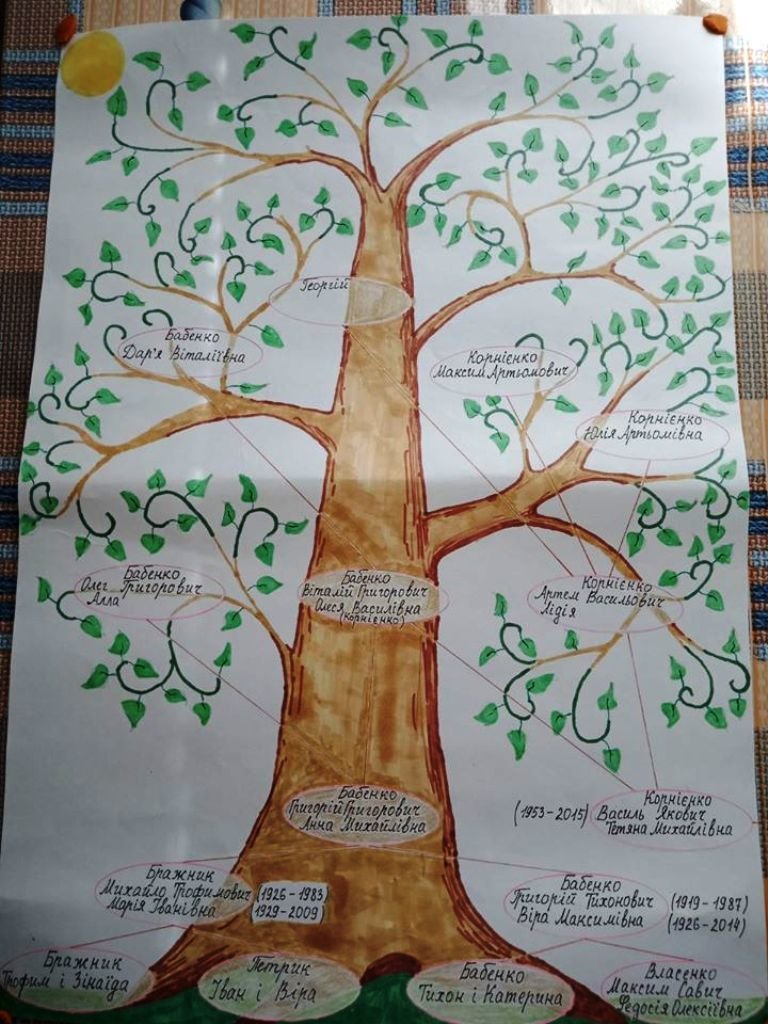 Георгій
Бабенко
Дар'я Віталіївна
Корнієнко
Максим Артьомович
Корнієнко
Юлія Артьомівна
Бабенко
Олег Григорович
Алла
Бабенко
Віталій Григорович
Олеся Василівна
(Корнієнко)
Корнієнко
Артем Васильович
Лідія
Бабенко
Григорій Григорович
Анна Михайлівна
(1953-2015)
Корнієнко
Василь Якович
Тетяна Михайлівна
Бражник
Михайло Трофимович
Марія Іванівна
(1926-1983)
1929-2009)
Бабенко
Григорій Тихонович
Віра Максимівна
(1919-1987)
(1926-2014)
Бражник
Трофим і Зінаїда
Петрик
Іван і Віра
Бабенко
Тихон і Катерина
Власенко
Максим Савич
Федосія Олексіївна